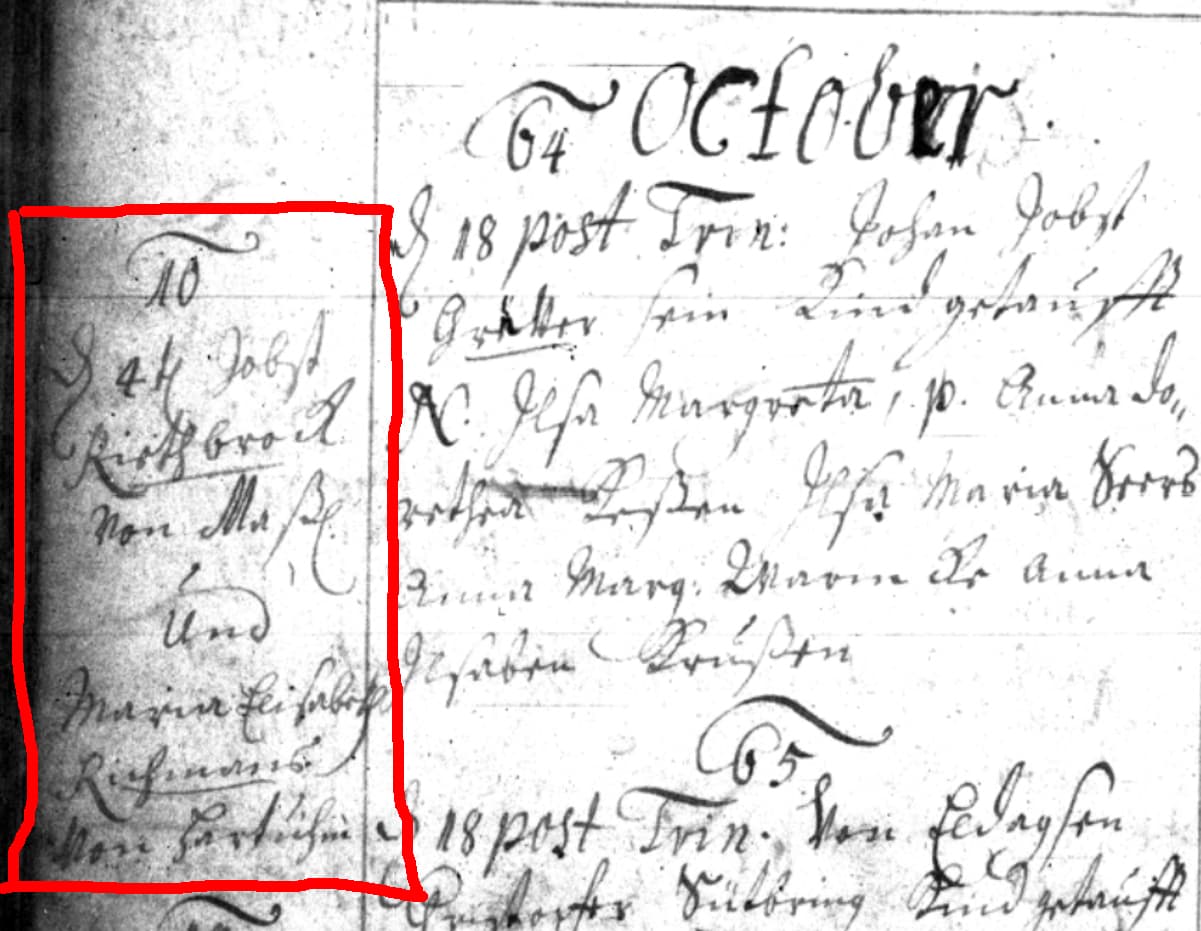 10
D 4t Jobst
Riethbrock
Von Maßl.
Und
Maria Elisabeth
Richmans
Von Hartuhm
64 October
D 18 post Trin: Johan Jobst
Grätter sein Kind getaufft
N. Ilsa Margreta, p. Anna Do„
rethea Ilsa Maria Seers
Anna Marg: Anna
Ilsaben Krußen
65
D 18 post Trin. Von Eldagsen
Sütbring Kind getaufft